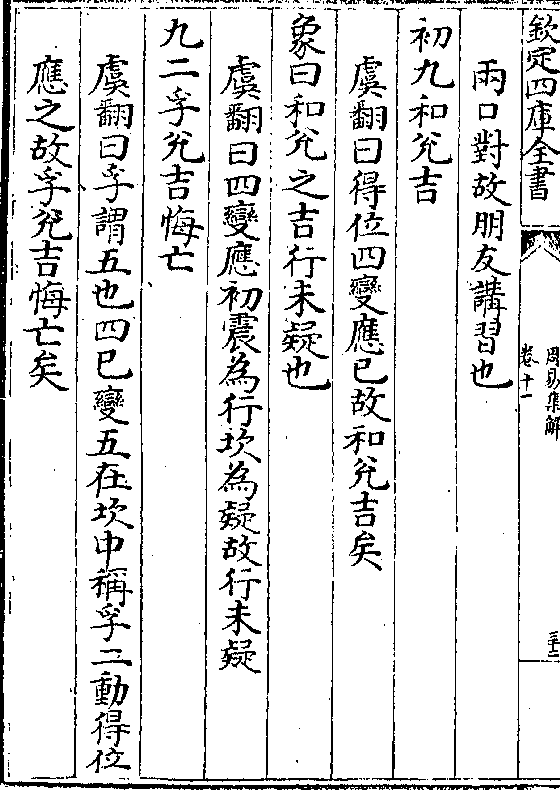 欽定四庫全書
周易集解
卷十一
三十二
兩口對故朋友講習也
初九和兊吉
虞翻曰得位四變應已故和兊吉矣
象曰和兊之吉行未疑也
虞翻曰四變應初震為行坎為疑故行未疑
九二孚兊吉悔亡
虞翻曰孚謂五也四已變五在坎中稱孚二動得位
應之故孚兊吉悔亡矣